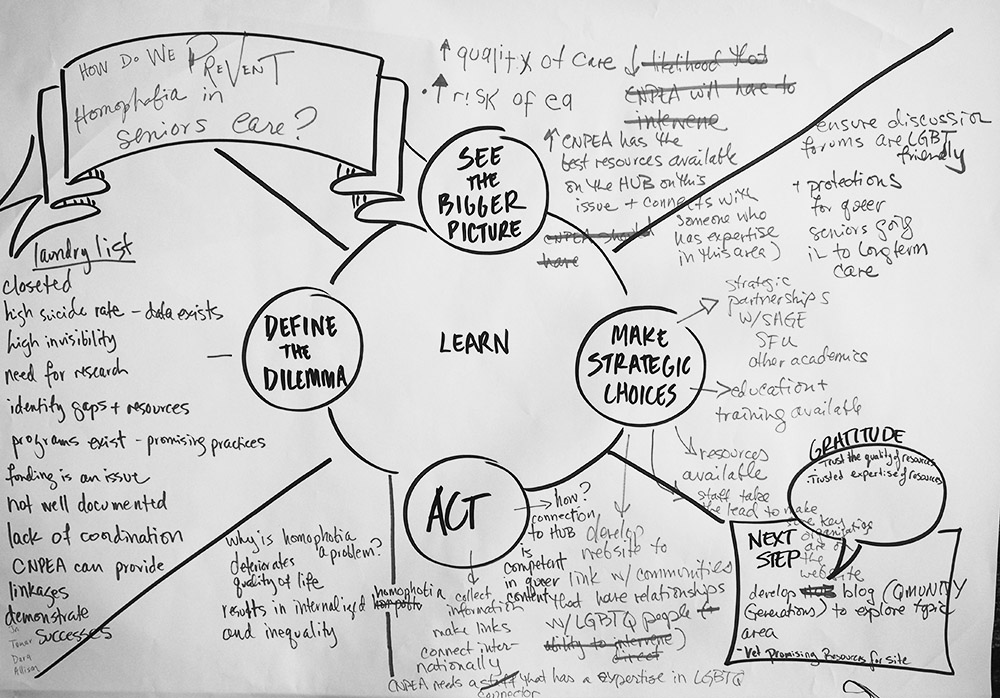 HOW DO WE PREVENT
Homophobia in
seniors care?
↑ quality of care ↓ likelihood that
CNPEA will have to
intervene
↑ risk of ea
↑ CNPEA has the
best resources available
on the HUB on this
issue + connects with
someone who
has expertise
in this area)
CNPEA should
have
SEE
THE
BIGGER
PICTURE
ensure discussion
forums are LGBT
friendly
+ protections
for queer
seniors going
into long term
care
laundry list
closeted
high suicide rate - data exists
high invisibility
need for research
identify gaps + resources
programs exist - promising practices
funding is an issue
not well documented
lack of coordination
CNPEA can provide
linkages
demonstrate
successes
Allison
DEFINE
THE
DILEMMA
LEARN
MAKE
STRATEGIC
CHOICES
strategic
partnerships
w/SAGE
SFU
other academics
education +
training available
resources
available
staff take
the lead to make
key
organizations
are
the
website
develop
website to
link w/ communities
that have relationships
w/ LGBTQ people
ability to intervene)
direct
ACT
Why is homophobia
a problem?
deteriorates
quality of life
results in internalized homophobia
and inequality
how?
connection
to HUB
is
competent
in queer
content
collect
information
make links
connect inter-
nationally
CNPEA needs a staff that has a expertise in LGBTQ
connector
GRATITUDE
· Trust the quality of resources
· Trusted expertise of resources
NEXT
STEP
develop HUB blog (QMUNITY
Generations) to explore topic
area
- Vet Promising Resources for site